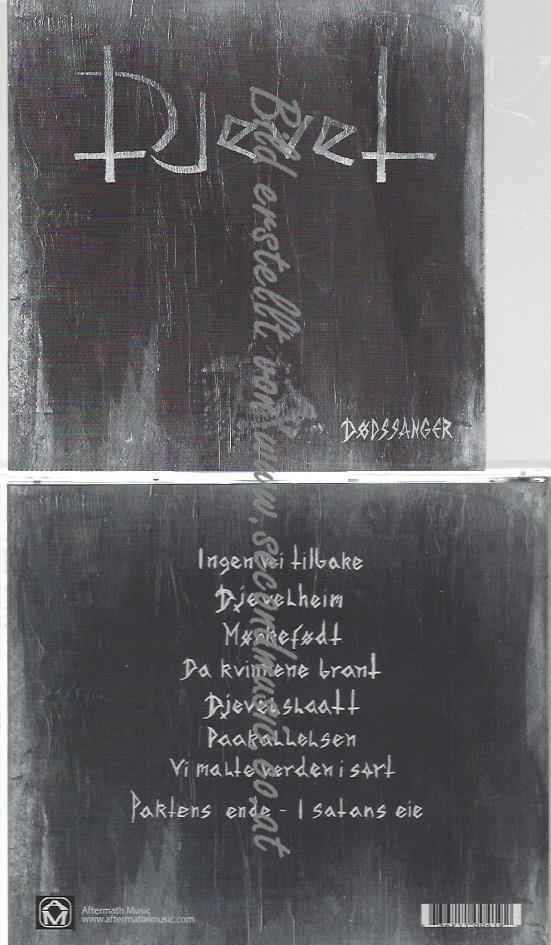 Djevel
DØDSSANGER
Bild erstellt von www.secondmusic.co.at
Ingen vei tilbake
Djevelheim
Mørkefødt
Da kvinnene brant
Djevelslaatt
Paakallelsen
Vi malte verden i sort
Paktens ende - I satans eie
Aftermath Music
www.aftermathmusic.com